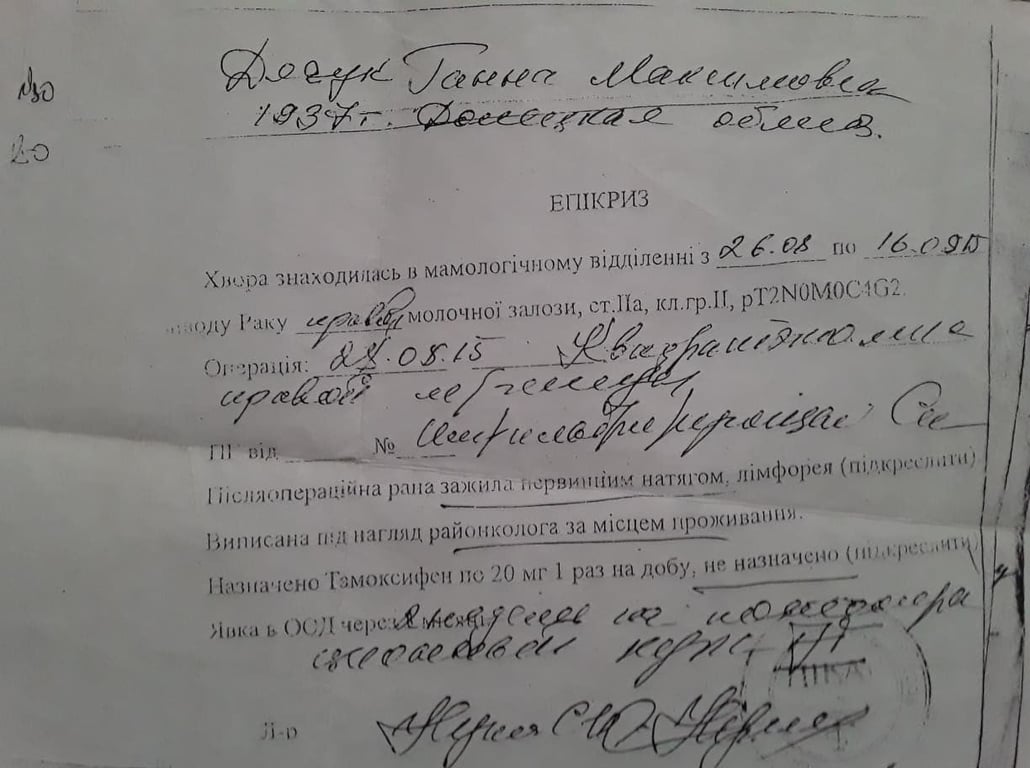 Дячук Ганна Максимовна
1937г. Донецкая област.
№0
20
ЕПІКРИЗ
Хвора знаходилась в мамологічному відділенні з 26.08 по 16.09.15
Раку правой молочної залози, ст.ІІа, кл.гр.ІІ, pT2N0M0C4G2.
Операція: .08.15 Квадрантэктомия
правой
ГІГ від № Инфильтрирующий Са
Післяопераційна рана зажила первинним натягом, лімфорея (підкреслити)
Виписана під нагляд районколога за місцем проживання.
Назначено Тамоксифен по 20 мг 1 раз на добу, не назначено (підкреслити)
Явка в ОСД через на
курс
Л-р